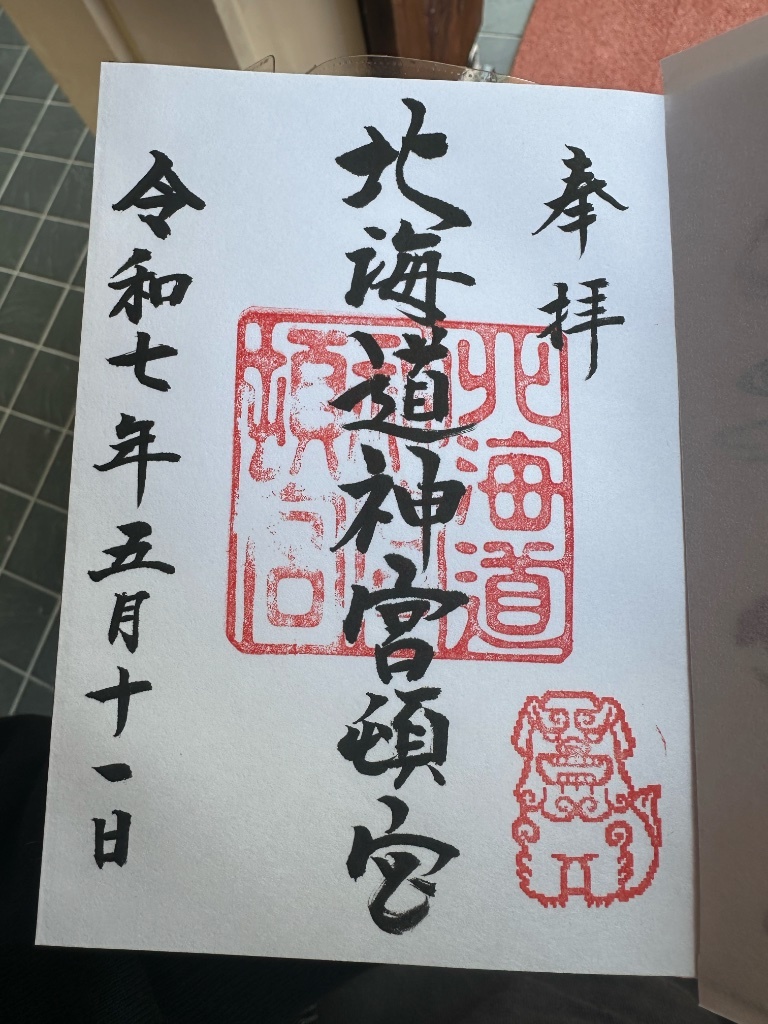 奉拝
北海道神宮頓宮
北海道
神宮
頓宮
令和七年五月十一日